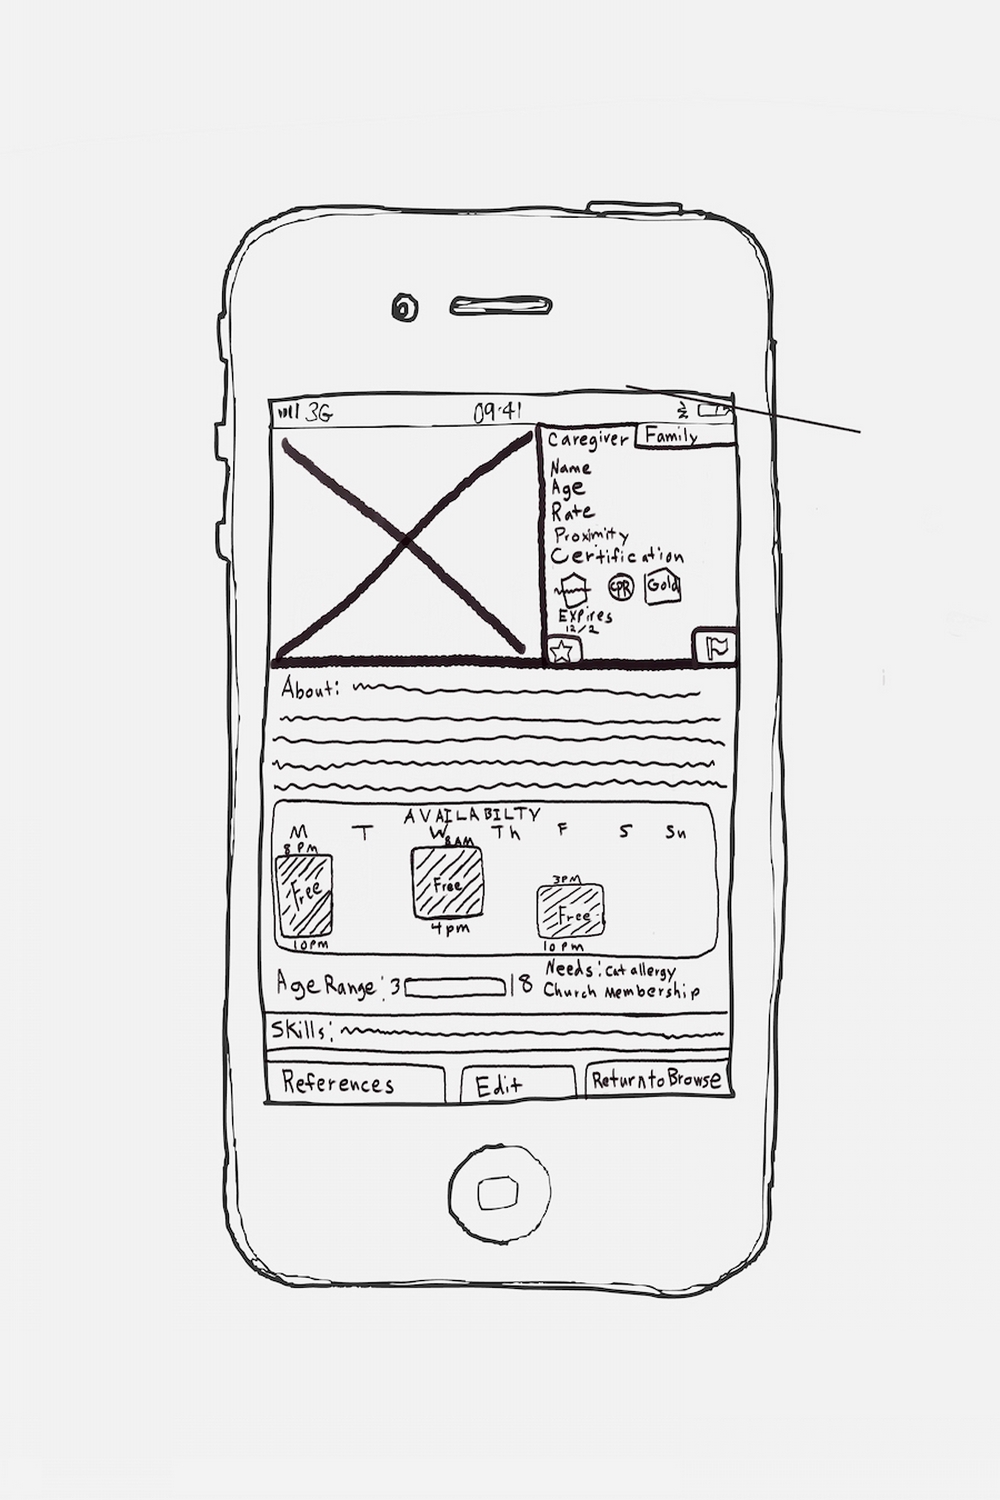 3G 09:41
Caregiver Family
Name
Age
Rate
Proximity
Certification
CPR Gold
Expires
12/2
About:
AVAILABILTY
M T W Th F S Sn
8 PM 8AM
Free Free
3PM
Free
4pm
10pm 10pm
Needs: Cat allergy
Age Range: 3 18 Church Membership
Skills:
References Edit Return to Browse